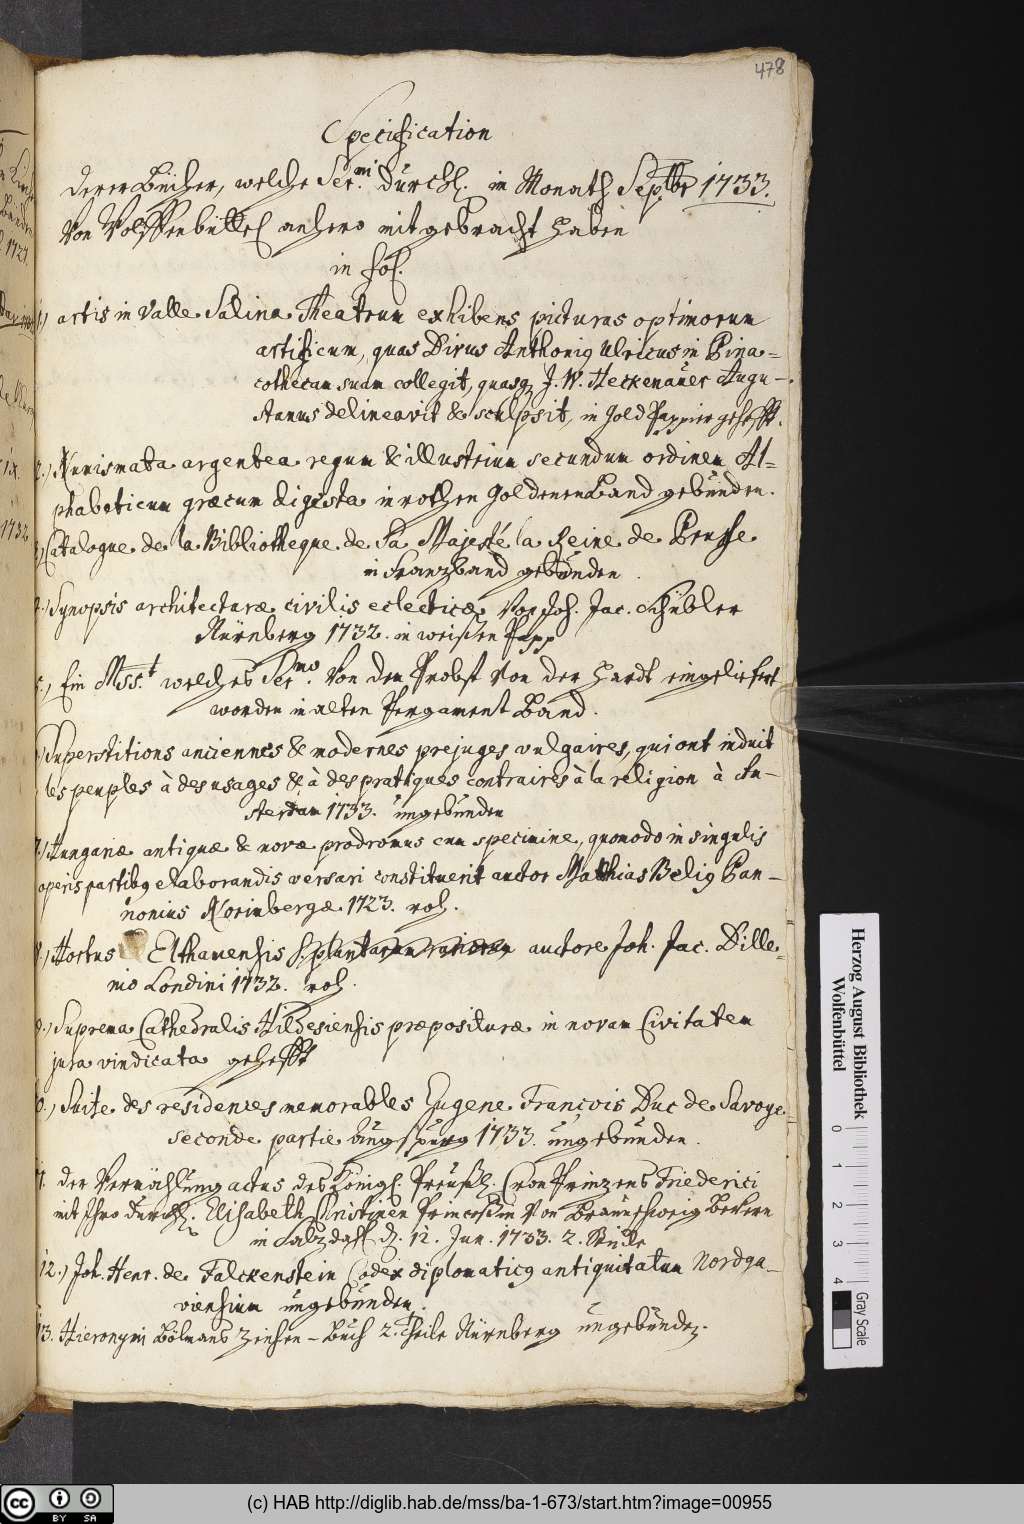 478
Specification
derer Bücher, welche Ser.mi Durchl. in Monath Septbr 1733.
Von Wolffenbüttel anhero mitgebracht haben
in fol.
1.) artis in Valle Salina Theatrum exhibens picturas optimorum
artificum, quas Divus Anthonig Ulricus in Pina=
cothecam suam collegit, quasq J. W. Heckenaüer Augu-
stanus delineavit & sculpsit, in Gold Pappier gehefft.
2.) Numismata argentea regum & illustrium secundum ordinem Al=
phabeticum græcum digesta in rothen goldenen Band gebünden.
3.) Catalogue de la Bibliotheque de Sa Majesté la Reine de Prusse
in Franzband gebünden.
4.) Synopsis architecturæ civilis eclecticæ Von Joh. Jac. Schübler
Nürnberg 1732. in weißen Papp
5.) Ein Mss.t welches Ser.mo Von dem Probst Von der Hardt eingeliefert
worden in alten Pergament Band.
6.) Superstitions anciennes & modernes prejuges vulgaires, qui ont induit
les peuples à des usages & à des pratiques contraires à la religion à Am-
sterdam 1733. üngebünden
7.) Hungariæ antiquæ & novæ prodromus cum specimine, quomodo in singulis
operis partibg elaborandis versari constituerit auctor Matthias Belig Pan-
nonius Norimbergæ 1723. roh.
8.) Hortus Elthamensis s. plantarum rariorum auctore Joh. Jac. Dille=
nio Londini 1732. roh.
9.) Suprema Cathedralis Hildesiensis præpositura in novam Civitatem
jura vindicata gehefft
10.) Suite des residences memorables Eugene François Duc de Savoye
seconde partie Aügspurg 1733. üngebünden.
11. der Vermählung actus des Königl. Preüßl. Cron Prinzens Friederici
mit Ihro Dürchl. Elisabeth Christinen Princeßin Von Braünschweig Bevern
in Salzdahl d. 12. Jun. 1733. 2. Stücke
12.) Joh. Henr. de Falckenstein Codex diplomaticg antiquitatum Nordga-
viensium üngebünden.
13. Hieronymi Bölmans Zinsen-Büch 2. Theile Nürnberg üngebünden.
Herzog August Bibliothek
Wolfenbüttel
0 1 2 3 4
Gray Scale
(c) HAB http://diglib.hab.de/mss/ba-1-673/start.htm?image=00955
cc BY SA